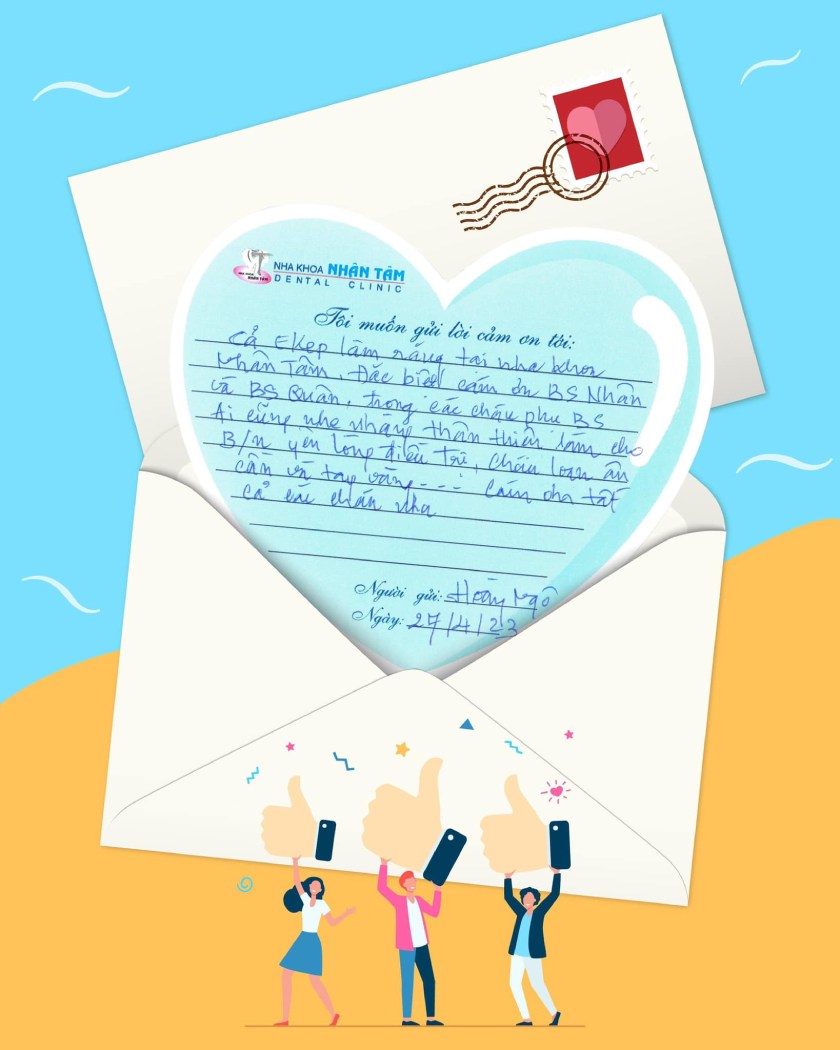 NHA KHOA NHÂN TÂM
NHA KHOA NHÂN TÂM
DENTAL CLINIC
Tôi muốn gửi lời cảm ơn tới:
Cả EKep làm răng tại nha khoa
Nhân Tâm, Đặc biệt cám ơn BS Nhân
và BS Quân, trong các cháu phụ BS
Ai cũng nhẹ nhàng thân thiện làm cho
B/n yên lòng điều trị, cháu loan ân
cần và tay vàng - - - : cám
cả các cháu nha
Người gửi: Hoàng Ngô
Ngày: 27/4/23